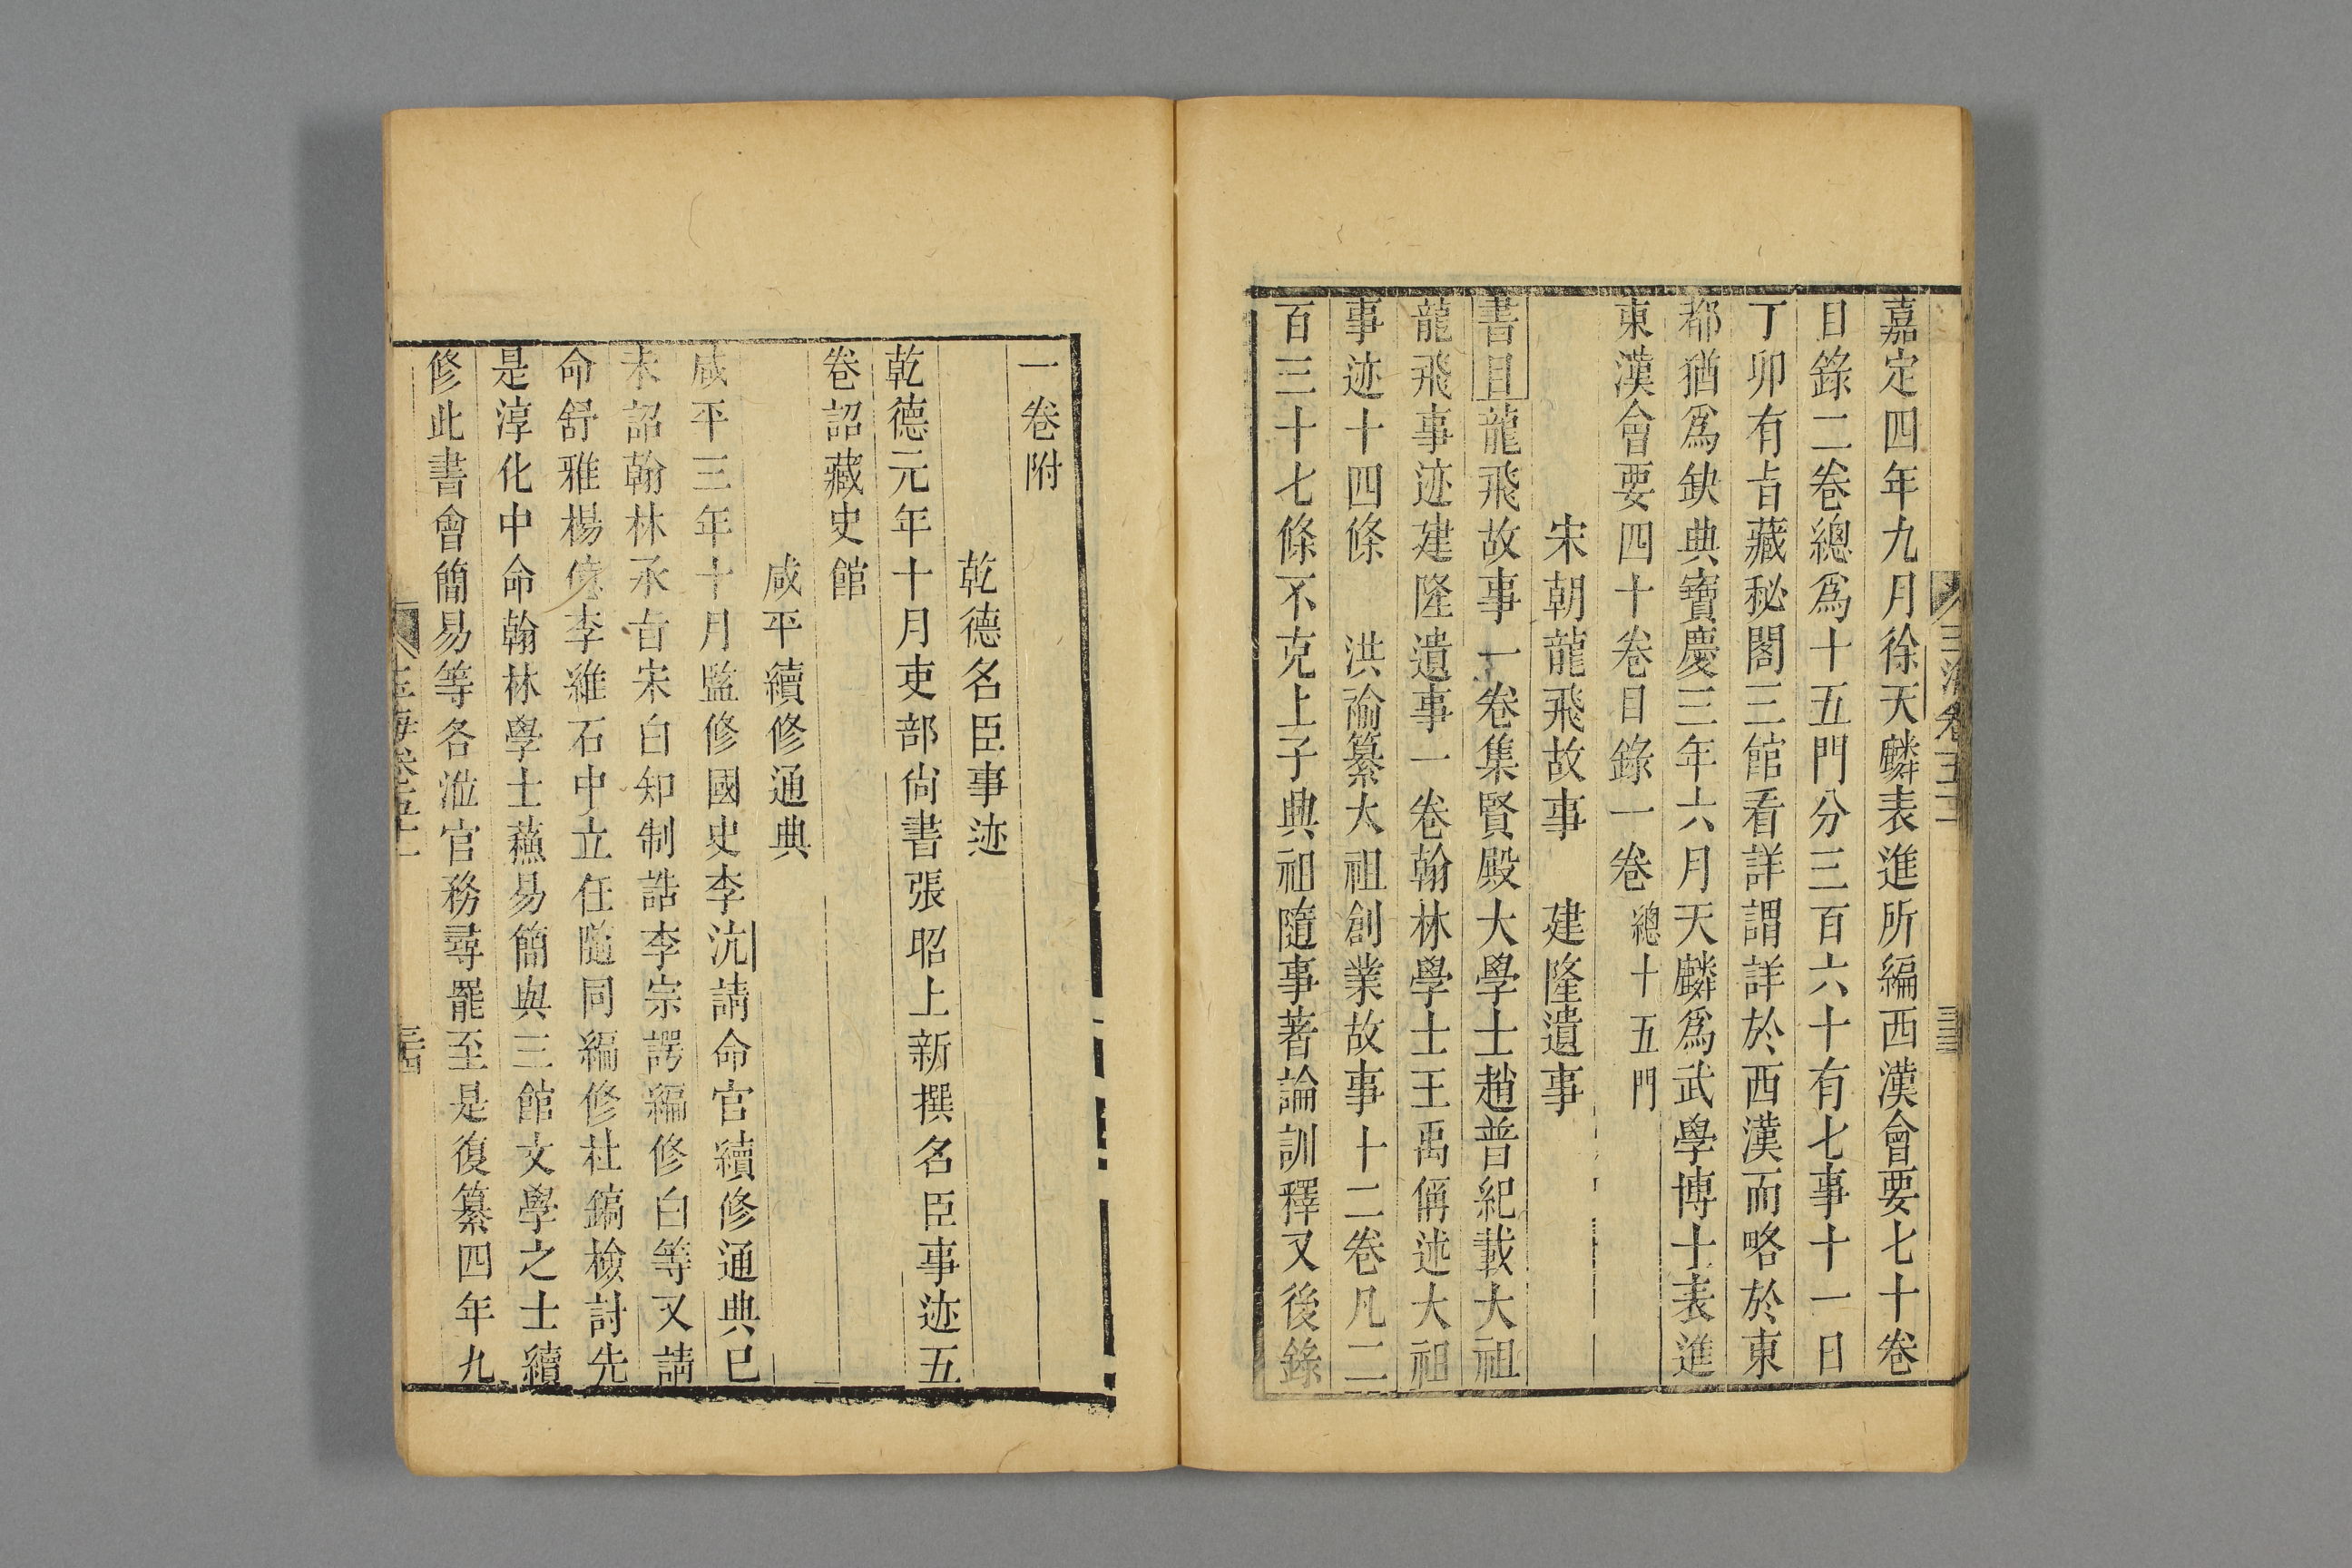 嘉定四年九月徐天麟表進所編西漢會要七十卷
目錄二卷總爲十五門分三百六十有七事十一日
丁卯有㫖藏秘閣三館看詳謂詳於西漢而略於東
都猶爲缺典寶慶三年六月天麟爲武學博士表進
東漢會要四十卷目錄一卷總十五門
宋朝龍飛故事 建隆遺事
書目龍飛故事一卷集賢殿大學士趙普紀載大祖
龍飛事迹建隆遺事一卷翰林學士王禹偁述大祖
事迹十四條 洪𦵏纂大祖創業故事十二卷凡二
百三十七條不克上子典祖隨事著論訓釋又後錄
一卷附
乾德名臣事迹
乾德元年十月吏部尙書張昭上新撰名臣事迹五
卷詔藏史館
咸平續修通典
咸平三年十月監修國史李沆請命官續修通典己
未詔翰林承㫖宋白知制誥李宗諤編修白等又請
命舒雅楊億李維石中立任隨同編修杜鎬檢討先
是淳化中命翰林學士蘓易簡與三館文學之士續
修此書會簡易等各涖官務尋罷至是復纂四年九
玉海卷五十一